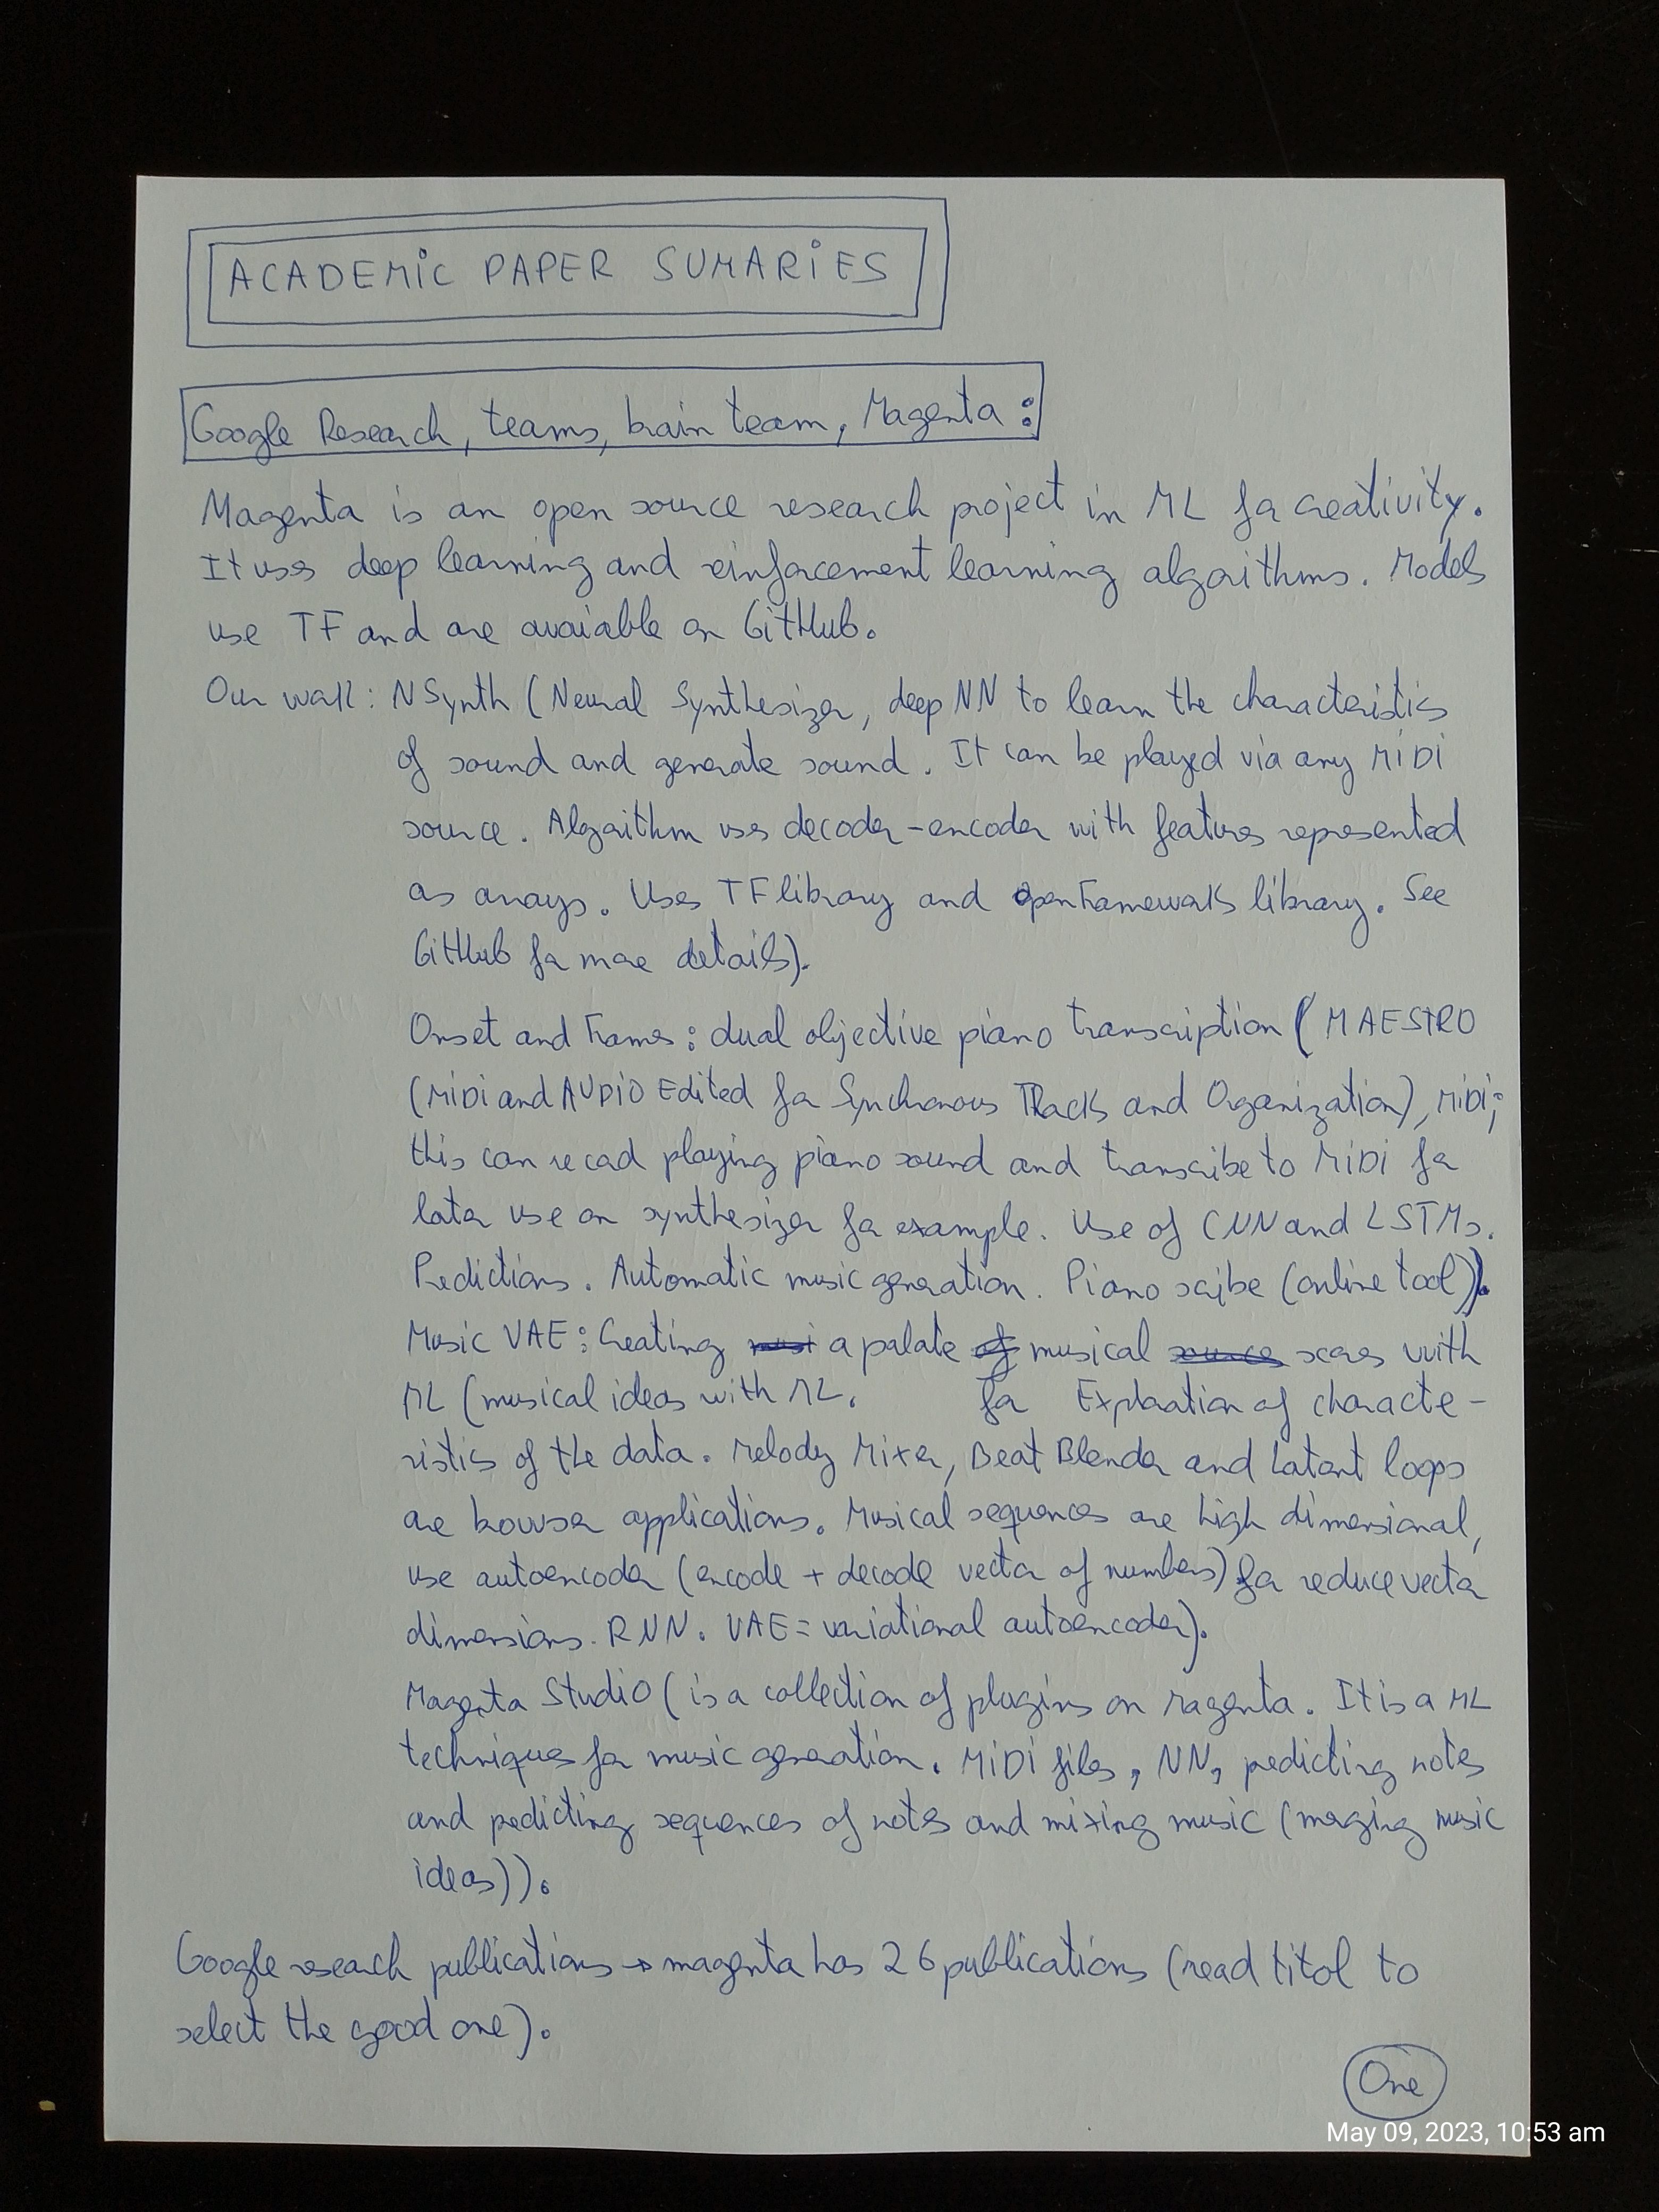 ACADEMIC PAPER SUMARIES
Google Research, teams, brain team, Magenta:
Magenta is an open source research project in ML for creativity.
It uses deep learning and reinforcement learning algorithms. Models
use TF and are avaiable on GitHub.
Our work: NSynth (Neural Synthesizer, deep NN to learn the characteristics
of sound and generate sound. It can be played via any MiDi
source. Algorithm uses decoder-encoder with features represented
as arrays. Uses TF library and openFrameworks library. See
GitHub for more details).
Onset and Frames: dual objective piano transcription (MAESTRO
(MiDi and AUDiO Edited for Synchronous TRacks and Organization), MiDi;
this can record playing piano sound and transcribe to MiDi for
later use on synthesizer for example. Use of CNN and LSTMs.
Predictions. Automatic music generation. Piano scribe (online tool)).
Music VAE: Creating a palate musical scores with
ML (musical ideas with ML. for Exploration of characte-
ristics of the data. Melody Mixer, Beat Blender and Latent loops
are browser applications. Musical sequences are high dimensional,
use autoencoder (encode + decode vector of numbers) for reduce vector
dimensions. RNN. VAE = variational autoencoder).
Magenta Studio (is a collection of plugins on Magenta. It is a ML
techniques for music generation. MiDi files, NN, predicting notes
and predicting sequences of notes and mixing music (merging music
ideas)).
Google research publications → magenta has 26 publications (read titol to
select the good one).
One
May 09, 2023, 10:53 am